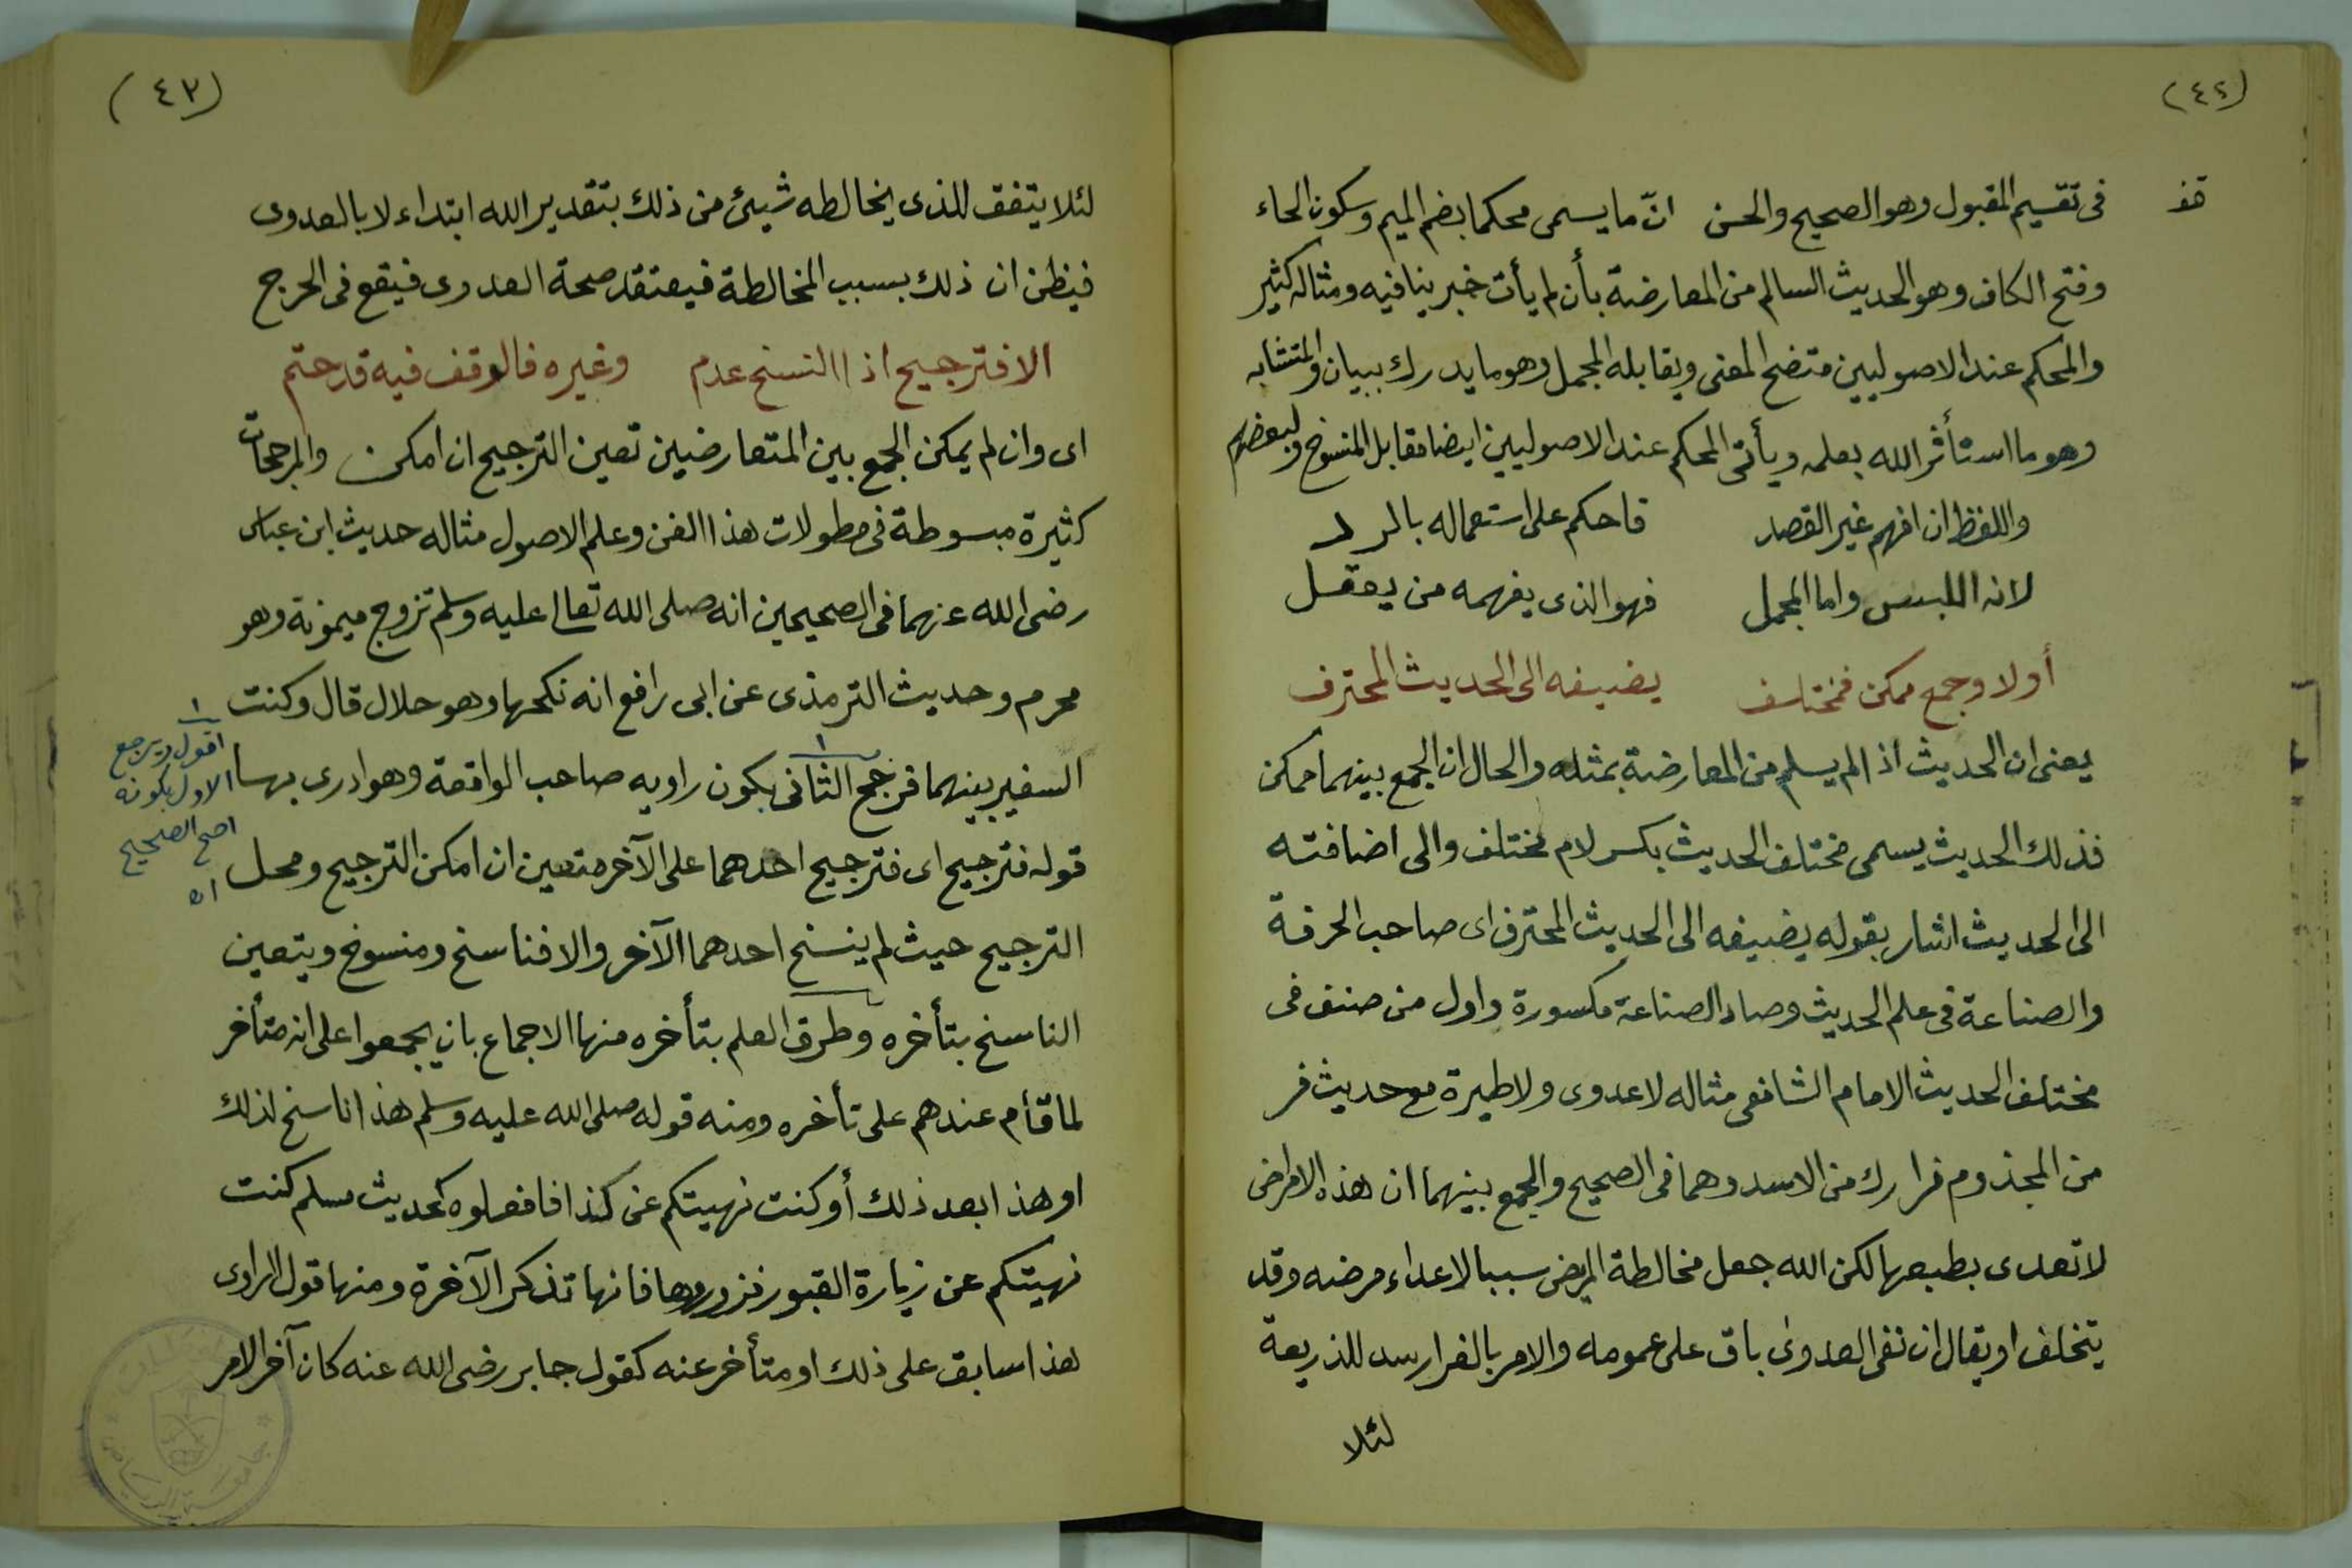 (٤٢)
قف
فى تقسيم المقبول وهو الصحيح والحسن انّ ما يسمى محكما بضم الميم وسكون الحاء
وفتح الكاف وهو الحديث السالم من المعارضة بأن لم يأت خبر ينافيه ومثاله كثير
والمحكم عند الاصوليين متضح المعنى ويقابله المجمل وهو ما يدرك ببيان والمتشابه
وهو ما استأثر الله بعلمه ويأتى المحكم عند الاصوليين ايضا مقابل المنسوخ ولبعضهم
واللفظ ان افهم غير القصد فاحكم على استعماله بالرد
لانه اللبس واما المجمل فهو الذى يفهمه من يعقل
أولا وجمع ممكن فمختلف يضيفه الى الحديث المحترف
يعنى ان الحديث اذا لم يسلم من المعارضة بمثله والحال ان الجمع بينهما ممكن
فذلك الحديث يسمى مختلف الحديث بكسر لام مختلف والى اضافته
الى الحديث اشار بقوله يضيفه الى الحديث المحترف اى صاحب الحرفة
والصناعة فى علم الحديث وصاد الصناعة مكسورة واول من صنف فى
مختلف الحديث الامام الشافعى مثاله لا عدوى ولا طيرة مع حديث فر
من المجذوم فرارك من الاسد وهما فى الصحيح والجمع بينهما ان هذه الامراض
لا تعدى بطبعها لكن الله جعل مخالطة المريض سببا لاعداء مرضه وقد
يتخلف او يقال ان نفى العدوى باق على عمومه والامر بالفرار سد للذريعة
لئلا
(٤٣)
لئلا يتفق للذى يخالطه شيئ من ذلك بتقدير الله ابتداء لا بالعدوى
فيظن ان ذلك بسبب المخالطة فيعتقد صحة العدوى فيقع فى الحرج
الا فترجيح اذا النسخ عدم وغيره فالوقف فيه قد حتم
اى وان لم يمكن الجمع بين المتعارضين تعين الترجيح ان امكن والمرجحات
كثيرة مبسوطة فى مطولات هذا الفن وعلم الاصول مثاله حديث ابن عباس
رضى الله عنهما فى الصحيحين انه صلى الله تعالى عليه وسلم تزوج ميمونة وهو
محرم وحديث الترمذى عن ابى رافع انه نكحها وهو حلال قال وكنت
السفير بينهما فرجح الثانى بكون راويه صاحب الواقعة وهو ادرى بها
قوله فترجيح اى فترجيح احدهما على الآخر متعين ان امكن الترجيح ومحل
الترجيح حيث لم ينسخ احدهما الآخر والا فناسخ ومنسوخ ويتعين
الناسخ بتأخره وطرق العلم بتأخره منها الاجماع بان يجمعوا على انه متأخر
لما قام عندهم على تأخره ومنه قوله صلى الله عليه وسلم هذا ناسخ لذلك
او هذا بعد ذلك أو كنت نهيتكم عن كذا فافعلوه كحديث مسلم كنت
نهيتكم عن زيارة القبور فزوروها فانها تذكر الآخرة ومنها قول الراوى
هذا سابق على ذلك او متأخر عنه كقول جابر رضى الله عنه كان آخر الامر
١
١
اقول ويرجع
الاول بكونه
اصح الصحيح
اه
جامعة الرياض